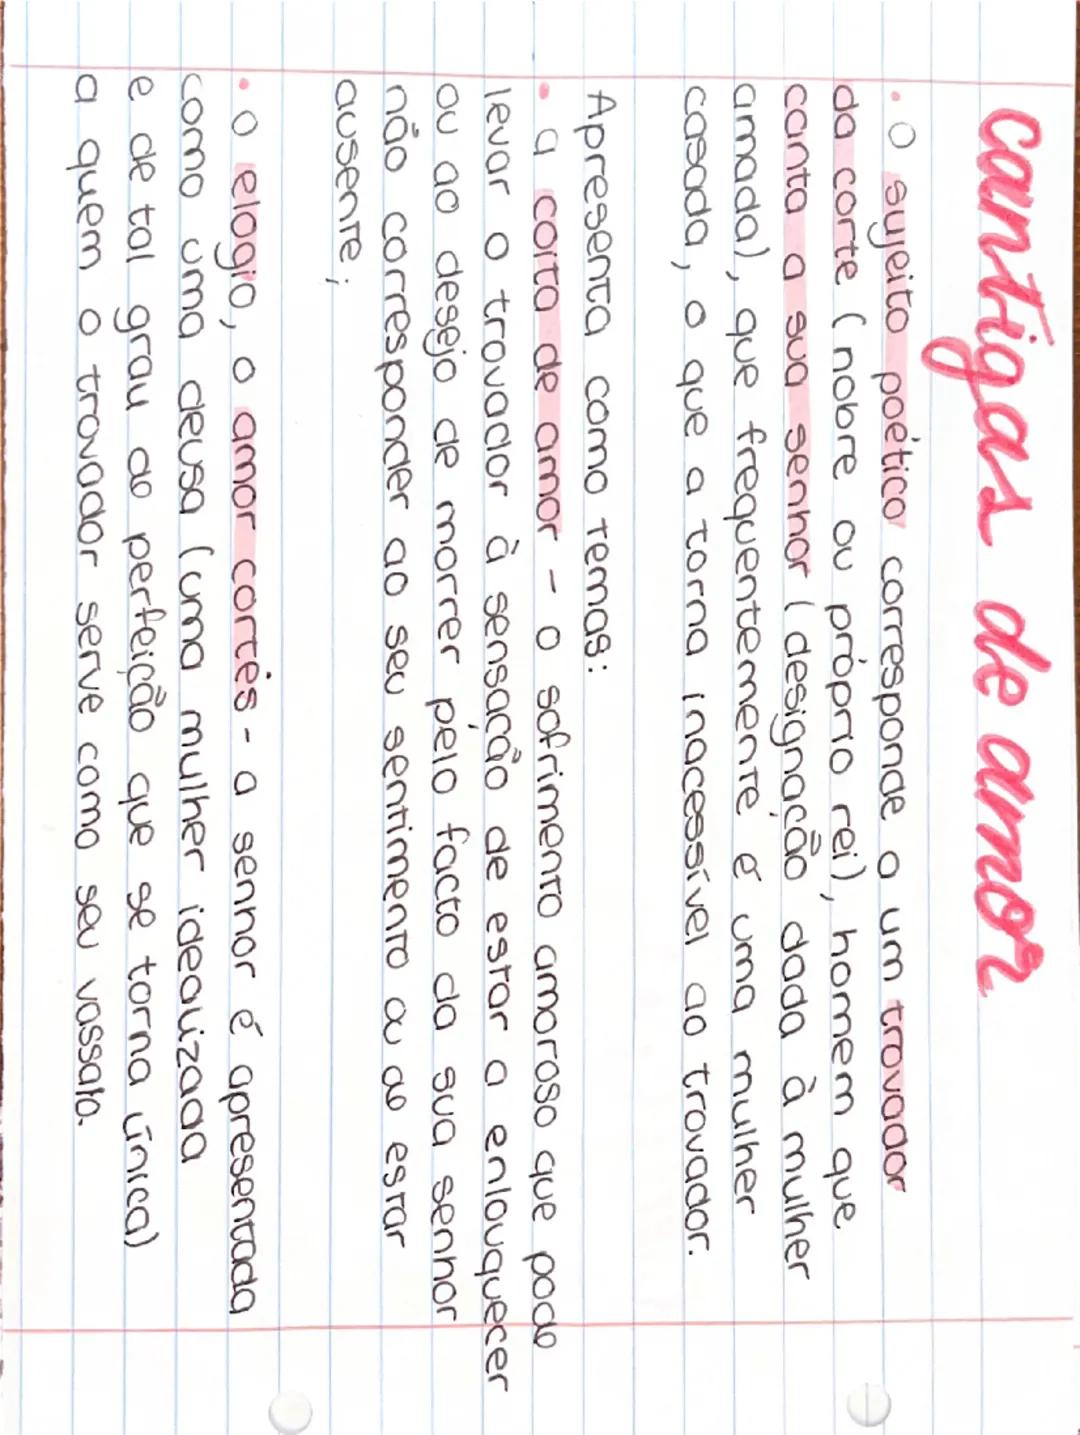 cantigas de amor
• O sujeito poético corresponde a um trovador
da corte (nobre ou próprio rei), homem que
canta a sua senhor (designação dada à mulher
amada), que frequentemente é uma mulher
casada, o que a torna inacessível ao trovador.
Apresenta como temas:
• a coita de amor - o sofrimento amoroso que pode
levar o trovador à sensação de estar a enlouquecer
ou ao desejo de morrer pelo facto da sua senhor
não corresponder ao seu sentimento ou ao estar
ausente;
• o elogio, o amor cortês - a senhor é apresentada
como uma deusa (uma mulher idealizada
e de tal grau do perfeição que se torna única)
a quem o trovador serve como seu vassalo.